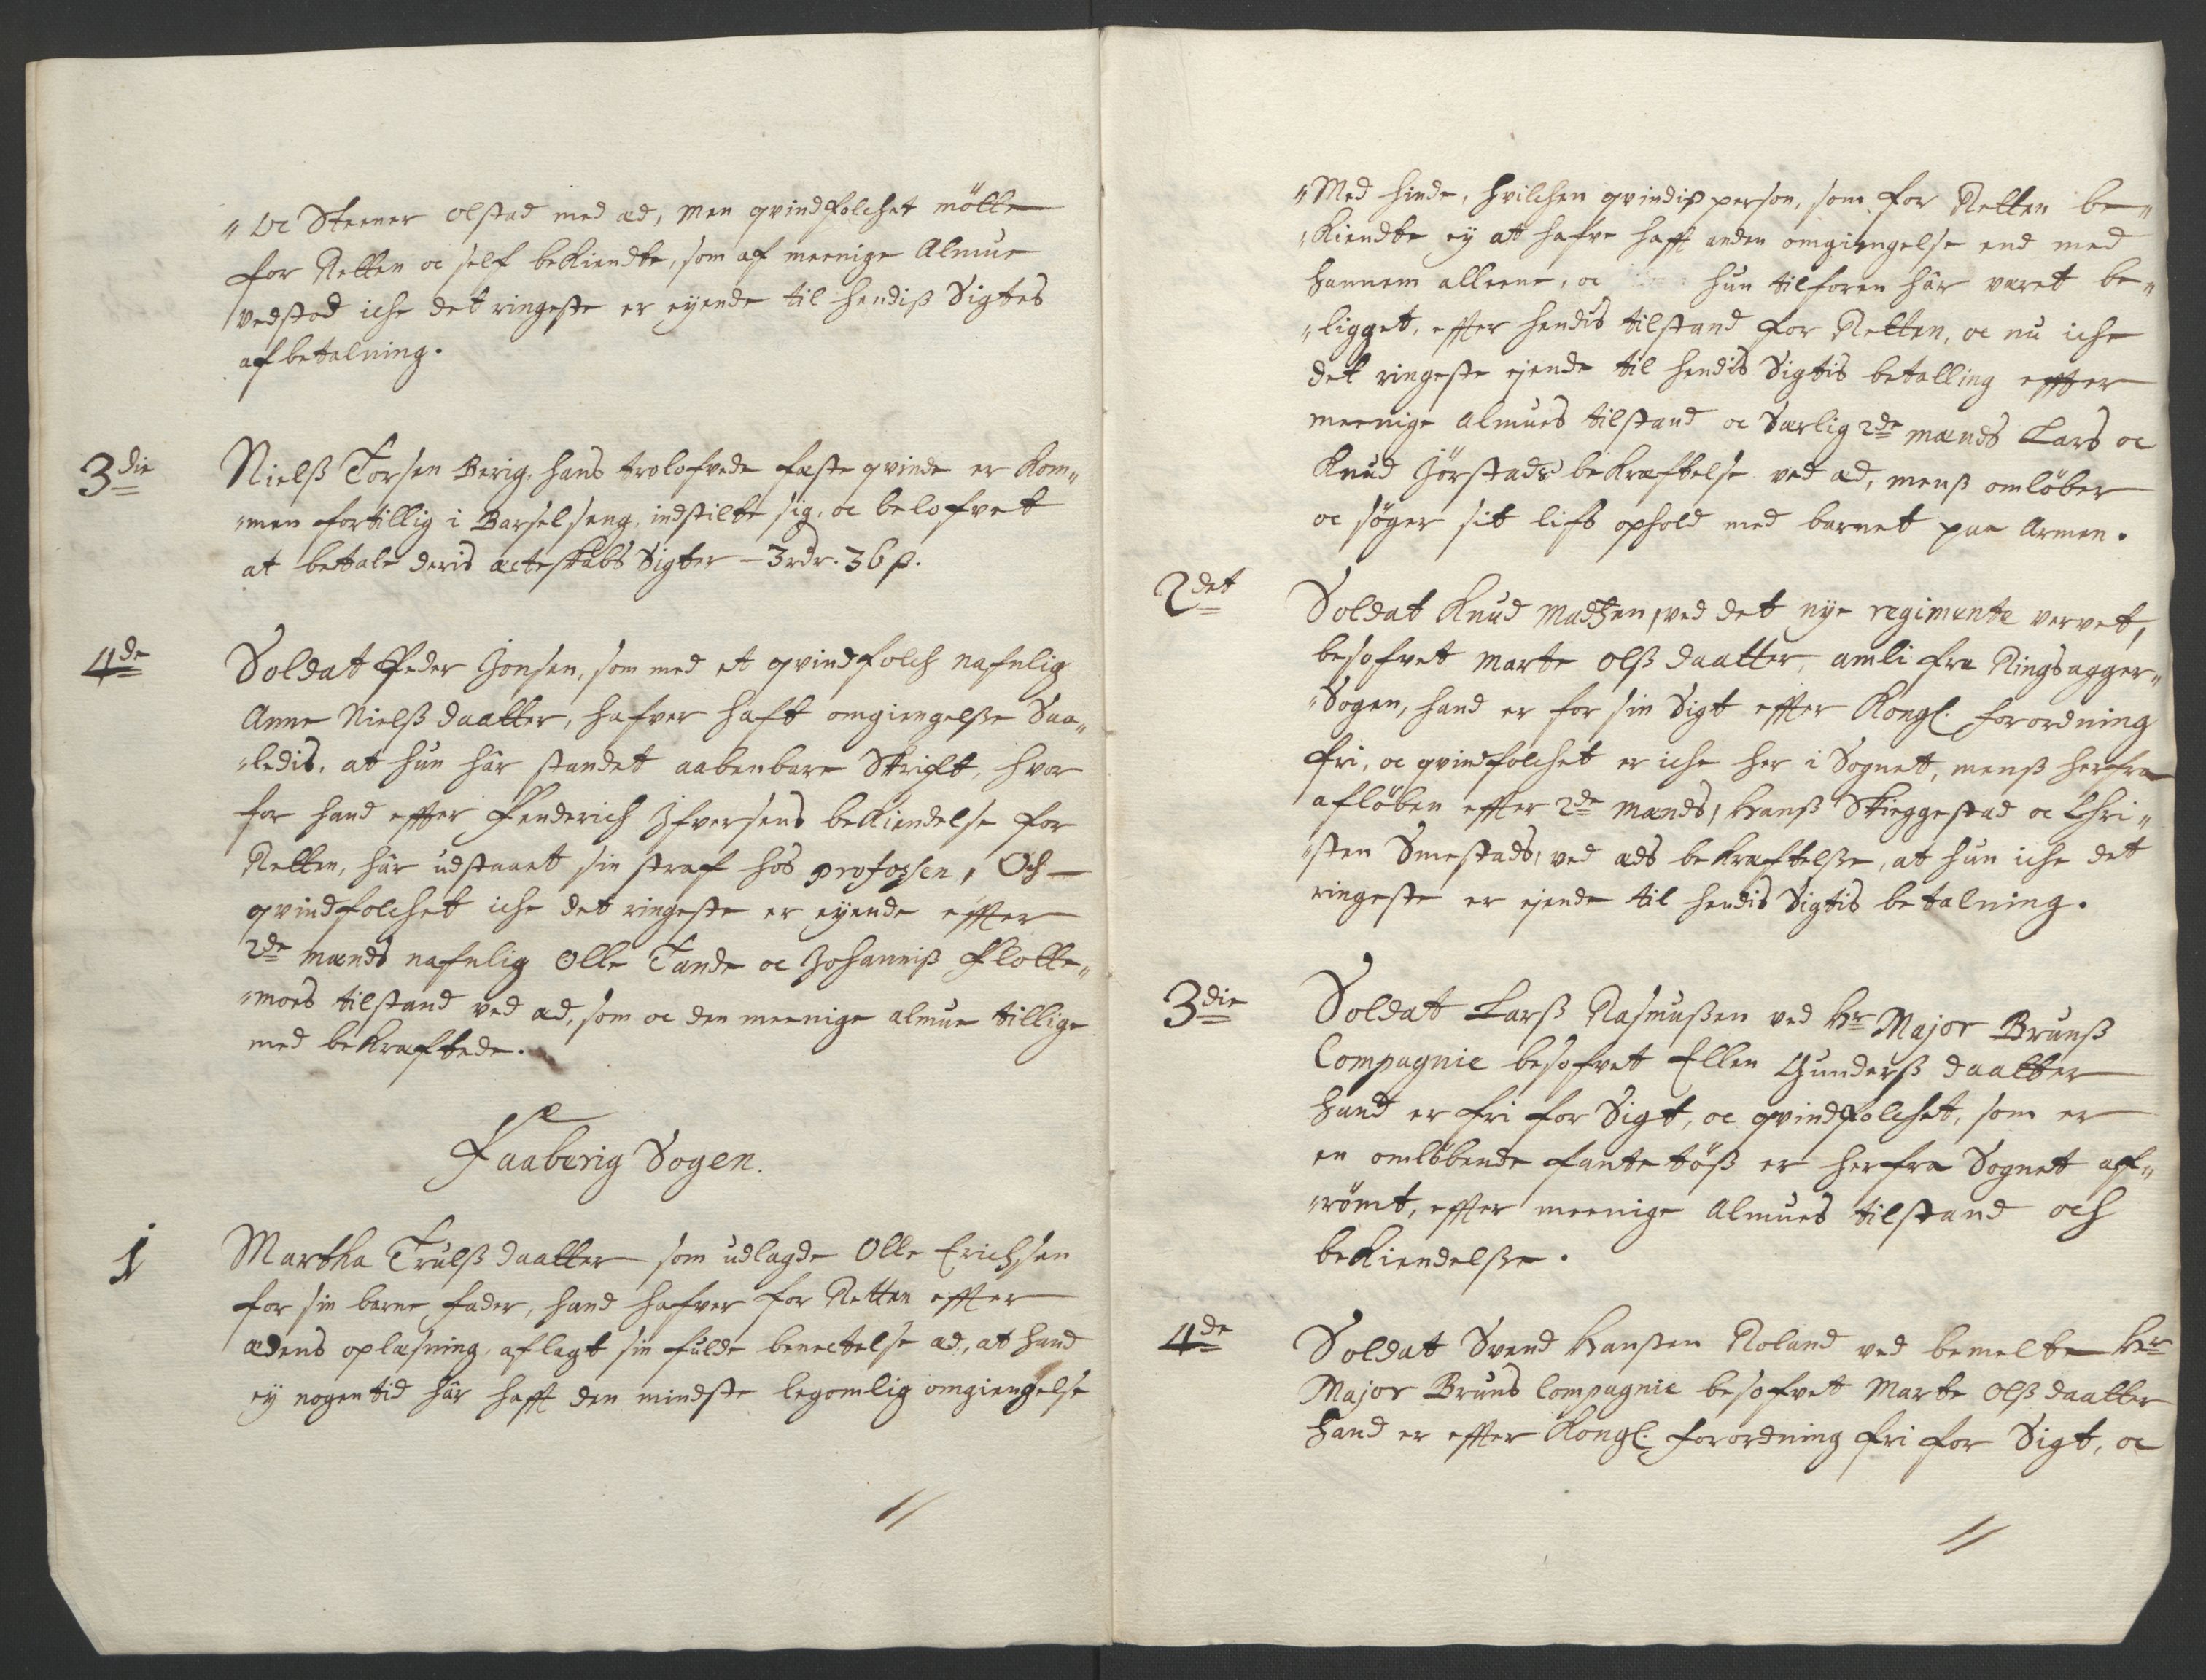 " oc Steener olstad med æd, Men qvindfolchet mötte
for Retten oc self bekiendte, som af meenige Almue
vedstod iche det ringeste er eÿende til hendiß Sigtes
afbetalning.
3die Nielß Torsen Berig, hans trolofvede fæste qvinde er kom"
"men fortillig i Barselseng, indstilte sig, oc belofvet
at betale deris ecteskabs Sigter – 3 rdr. 36 ß.
4de Soldat Peder Jonsen, som med et qvindfolch nafnlig
Anne Nielß daatter, hafver haft omgiengelße Saa"
"ledis, at hun hâr standet aabenbare Skrift, hvor
for hand effter Fenderich Ifversens bekiendelse for
Retten, hâr udstaaet sin straf hos profossen, Och
qvindfolchet iche det ringeste er eÿende effter
2de Mænds nafnlig Olle Tande oc Johanniß Flotte"
"moes tilstand ved æd, som oc den meenige almue tillige
med bekræftede.
Faaberig Sogen.
1 Martha Trulß daatter som udlagde Olle Erichsen
for sin barne fader, hand hafver for Retten effter
ædens oplæsning, aflagt sin fulde benectelse æd, at hand
eÿ nogen tid hâr hafft den mindste legomlig omgiengelse
"Med hinde, hvilchen qvindiß person, som for Retten be"
"kiendte eÿ at hafve hafft anden omgiengelse end med
hannem alleene, oc hun tilforen hâr varet be"
"ligget, effter hendis tilstand for Retten, oc nu iche
det ringeste ejende til hendis Sigtis betalling effter
meenige almues tilstand oc Særlig 2de mænds Lars oc
Knud Jörstads bekræftelse ved æd, menß omlöber
oc söger sit lifs ophold med barnet paa Armen.
2det Soldat Knud Madtzen, ved det nÿe regimente vervet,
besofvet Marte Olß daatter, amli fra Ringsagger"
"Sogen, hand er for sin Sigt effter Kongl. forordning
fri, oc qvindfolchet er iche her i Sognet, menß herfra
aflöben effter 2de Mænds, Hanß Skieggestad oc Chri"
"sten Smestads, ved æds bekræftelße, at hun iche det
ringeste er ejende til hendis Sigtis betalning.
3die Soldat Larß Rasmußen ved Hr Major Brunß
Compagnie besofvet Ellen Gunderß daatter
hand er fri for Sigt, oc qvindfolchet, som er
en omlöbende fante töß er herfra Sognet aff"
"römt, effter meenige Almues tilstand och
bekiendelße.
4de Soldat Svend Hanßen Roland ved bemelte Hr
Major Bruns Compagnie besofvet Marte Olß daatter
hand er effter Kongl. forordning fri for Sigt, oc